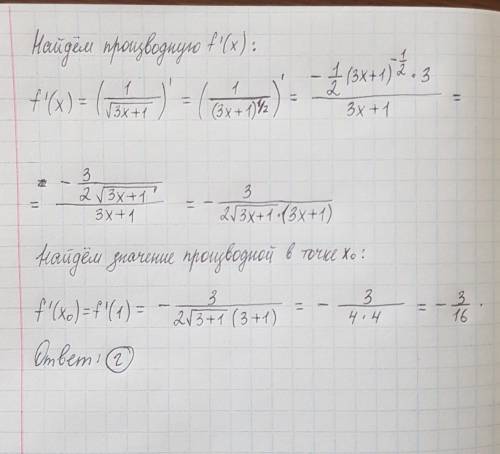 Найдём производную f'(x):
f'(x) = (1/√(3x+1))' = (1/(3x+1)^(1/2))' = (-1/2 (3x+1)^(-1/2) · 3)/(3x+1) =
= (-3/(2√(3x+1)))/(3x+1) = -3/(2√(3x+1)·(3x+1))
Найдём значение производной в точке x₀:
f'(x₀) = f'(1) = -3/(2√(3+1) (3+1)) = -3/(4·4) = -3/16.
Ответ: г